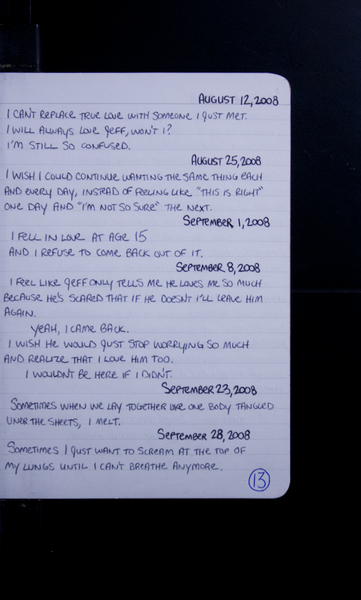 AUGUST 12, 2008
I CAN'T REPLACE TRUE LOVE WITH SOMEONE I JUST MET.
I WILL ALWAYS LOVE JEFF, WON'T I?
I'M STILL SO CONFUSED.
AUGUST 25, 2008
I WISH I COULD CONTINUE WANTING THE SAME THING EACH
AND EVERY DAY, INSTEAD OF FEELING LIKE "THIS IS RIGHT"
ONE DAY AND "I'M NOT SO SURE" THE NEXT.
SEPTEMBER 1, 2008
I FELL IN LOVE AT AGE 15
AND I REFUSE TO COME BACK OUT OF IT.
SEPTEMBER 8, 2008
I FEEL LIKE JEFF ONLY TELLS ME HE LOVES ME SO MUCH
BECAUSE HE'S SCARED THAT IF HE DOESN'T I'LL LEAVE HIM
AGAIN.
YEAH, I CAME BACK.
I WISH HE WOULD JUST STOP WORRYING SO MUCH
AND REALIZE THAT I LOVE HIM TOO.
I WOULDN'T BE HERE IF I DIDN'T.
SEPTEMBER 23, 2008
SOMETIMES WHEN WE LAY TOGETHER LIKE ONE BODY TANGLED
UNDER THE SHEETS, I MELT.
SEPTEMBER 28, 2008
SOMETIMES I JUST WANT TO SCREAM AT THE TOP OF
MY LUNGS UNTIL I CAN'T BREATHE ANYMORE.
13